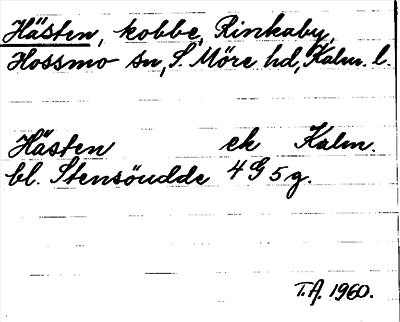 Hästen, kobbe, Rinkaby,
Hossmo sn, S. Möre hd, Kalm. l.
Hästen ek Kalm.
bl. Stensöudde 4G5g.
T.A. 1960.